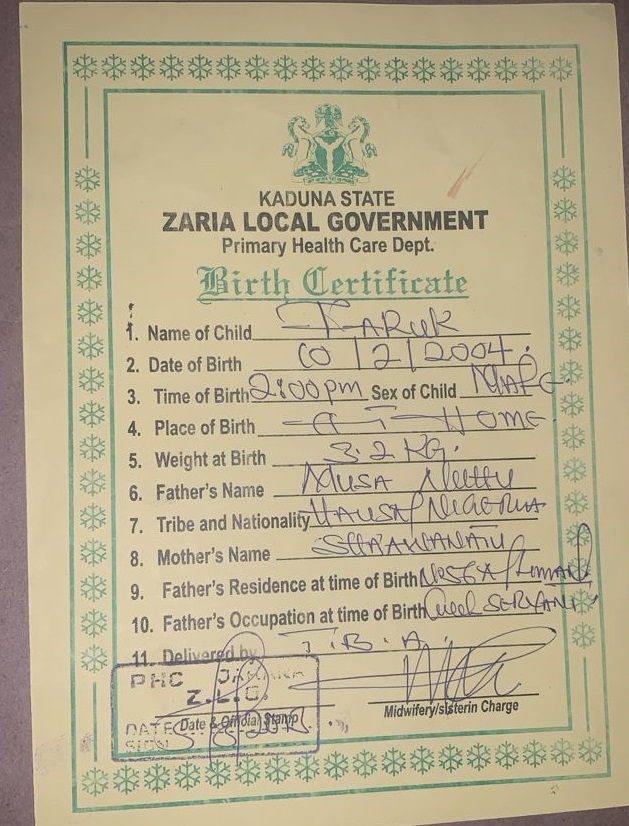 KADUNA STATE
ZARIA LOCAL GOVERNMENT
Primary Health Care Dept.
Birth Certificate
1. Name of Child TARUK
2. Date of Birth 10/2/2004.
3. Time of Birth 2:00pm Sex of Child MALE.
4. Place of Birth AT HOME
5. Weight at Birth 3.2 KG.
6. Father's Name MUSA
7. Tribe and Nationality HAUSA/NIGERIA
8. Mother's Name
9. Father's Residence at time of Birth
10. Father's Occupation at time of Birth Civil SERVANT
11. Delivered by T.B.A.
PHC
Z.L.G.
Midwifery/sisterin Charge
DATE Date & Official Stamp
SIGN